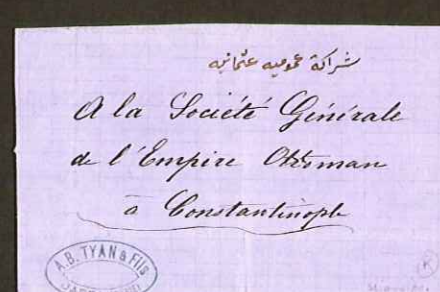 شراكة عموميه عثمانيه
A la Société Générale
de l'Empire Ottoman
à Constantinople
A.B. TYAN & FILS